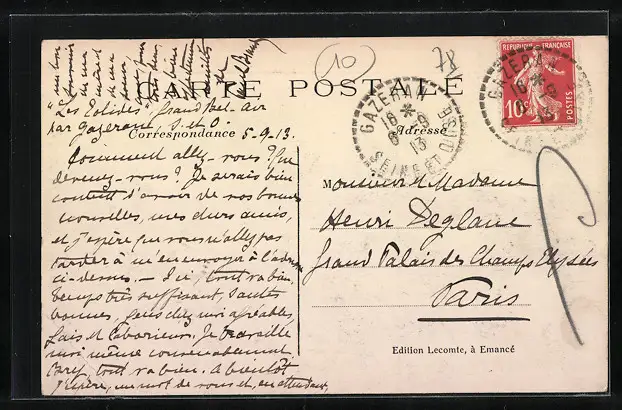 (10)
78
CARTE POSTALE
RÉPUBLIQUE FRANÇAISE
10c
POSTES
GAZERAN
16 *
6 - 9
13
SEINE ET OISE
"Les Eolides", Grand Bel-Air
par Gazeran. S.et O.
Correspondance 5-9-13.
Adresse
Comment allez-vous? Que
devenez-vous? Je serais bien
content d'avoir de vos bonnes
nouvelles, mes chers amis,
et j'espère que vous n'allez pas
tarder à m'en envoyer à l'adresse
ci-dessus. - Ici, tout va bien.
Temps très suffisant, santés
bonnes, gens chez moi agréables,
gais et laborieux. Je travaille
moi même convenablement
tout va bien. A bientôt
j'espère, un mot de vous et, en attendant,
Monsieur et Madame
Henri Deglane
Grand Palais des Champs Elysées
Paris
Edition Lecomte, à Emancé